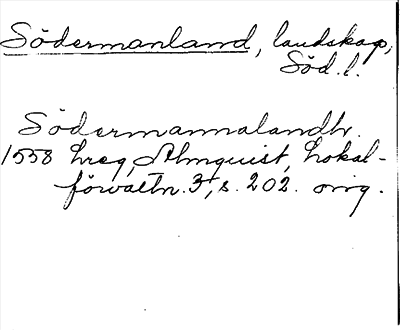 Södermanland, landskap,
Söd. l.
Södermannalandh.
1558 hreg, Almquist, Lokal-
förvaltn. 3, s. 202. orig.